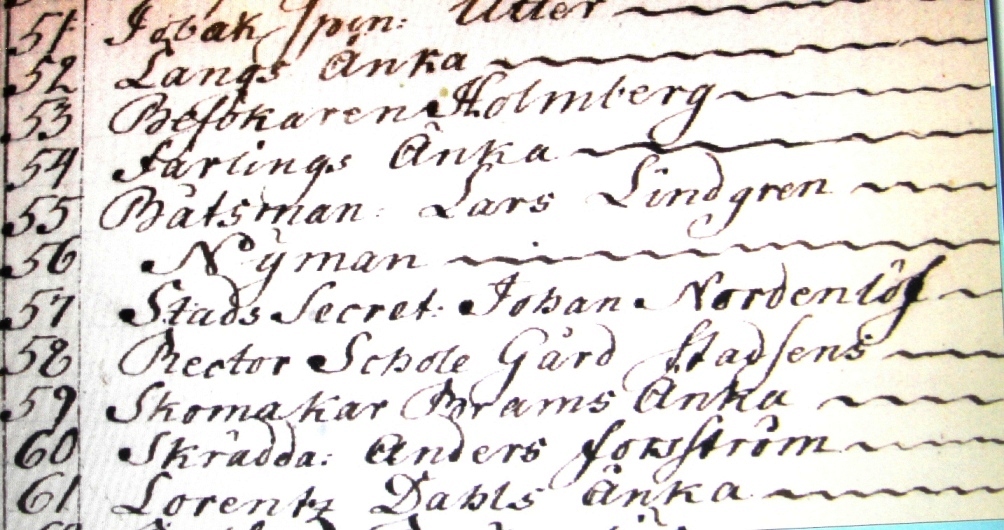 51 Tobak Spin: Utter
52 Langs Änka
53 Besökaren Holmberg
54 Farlings Änka
55 Båtsman: Lars Lindgren
56 Nyman
57 Stads Secret: Johan Nordenlöf
58 Rector Schole Gård Stadsens
59 Skomakar Brams Änka
60 Skrädda: Anders
61 Lorentz Dahls Änka